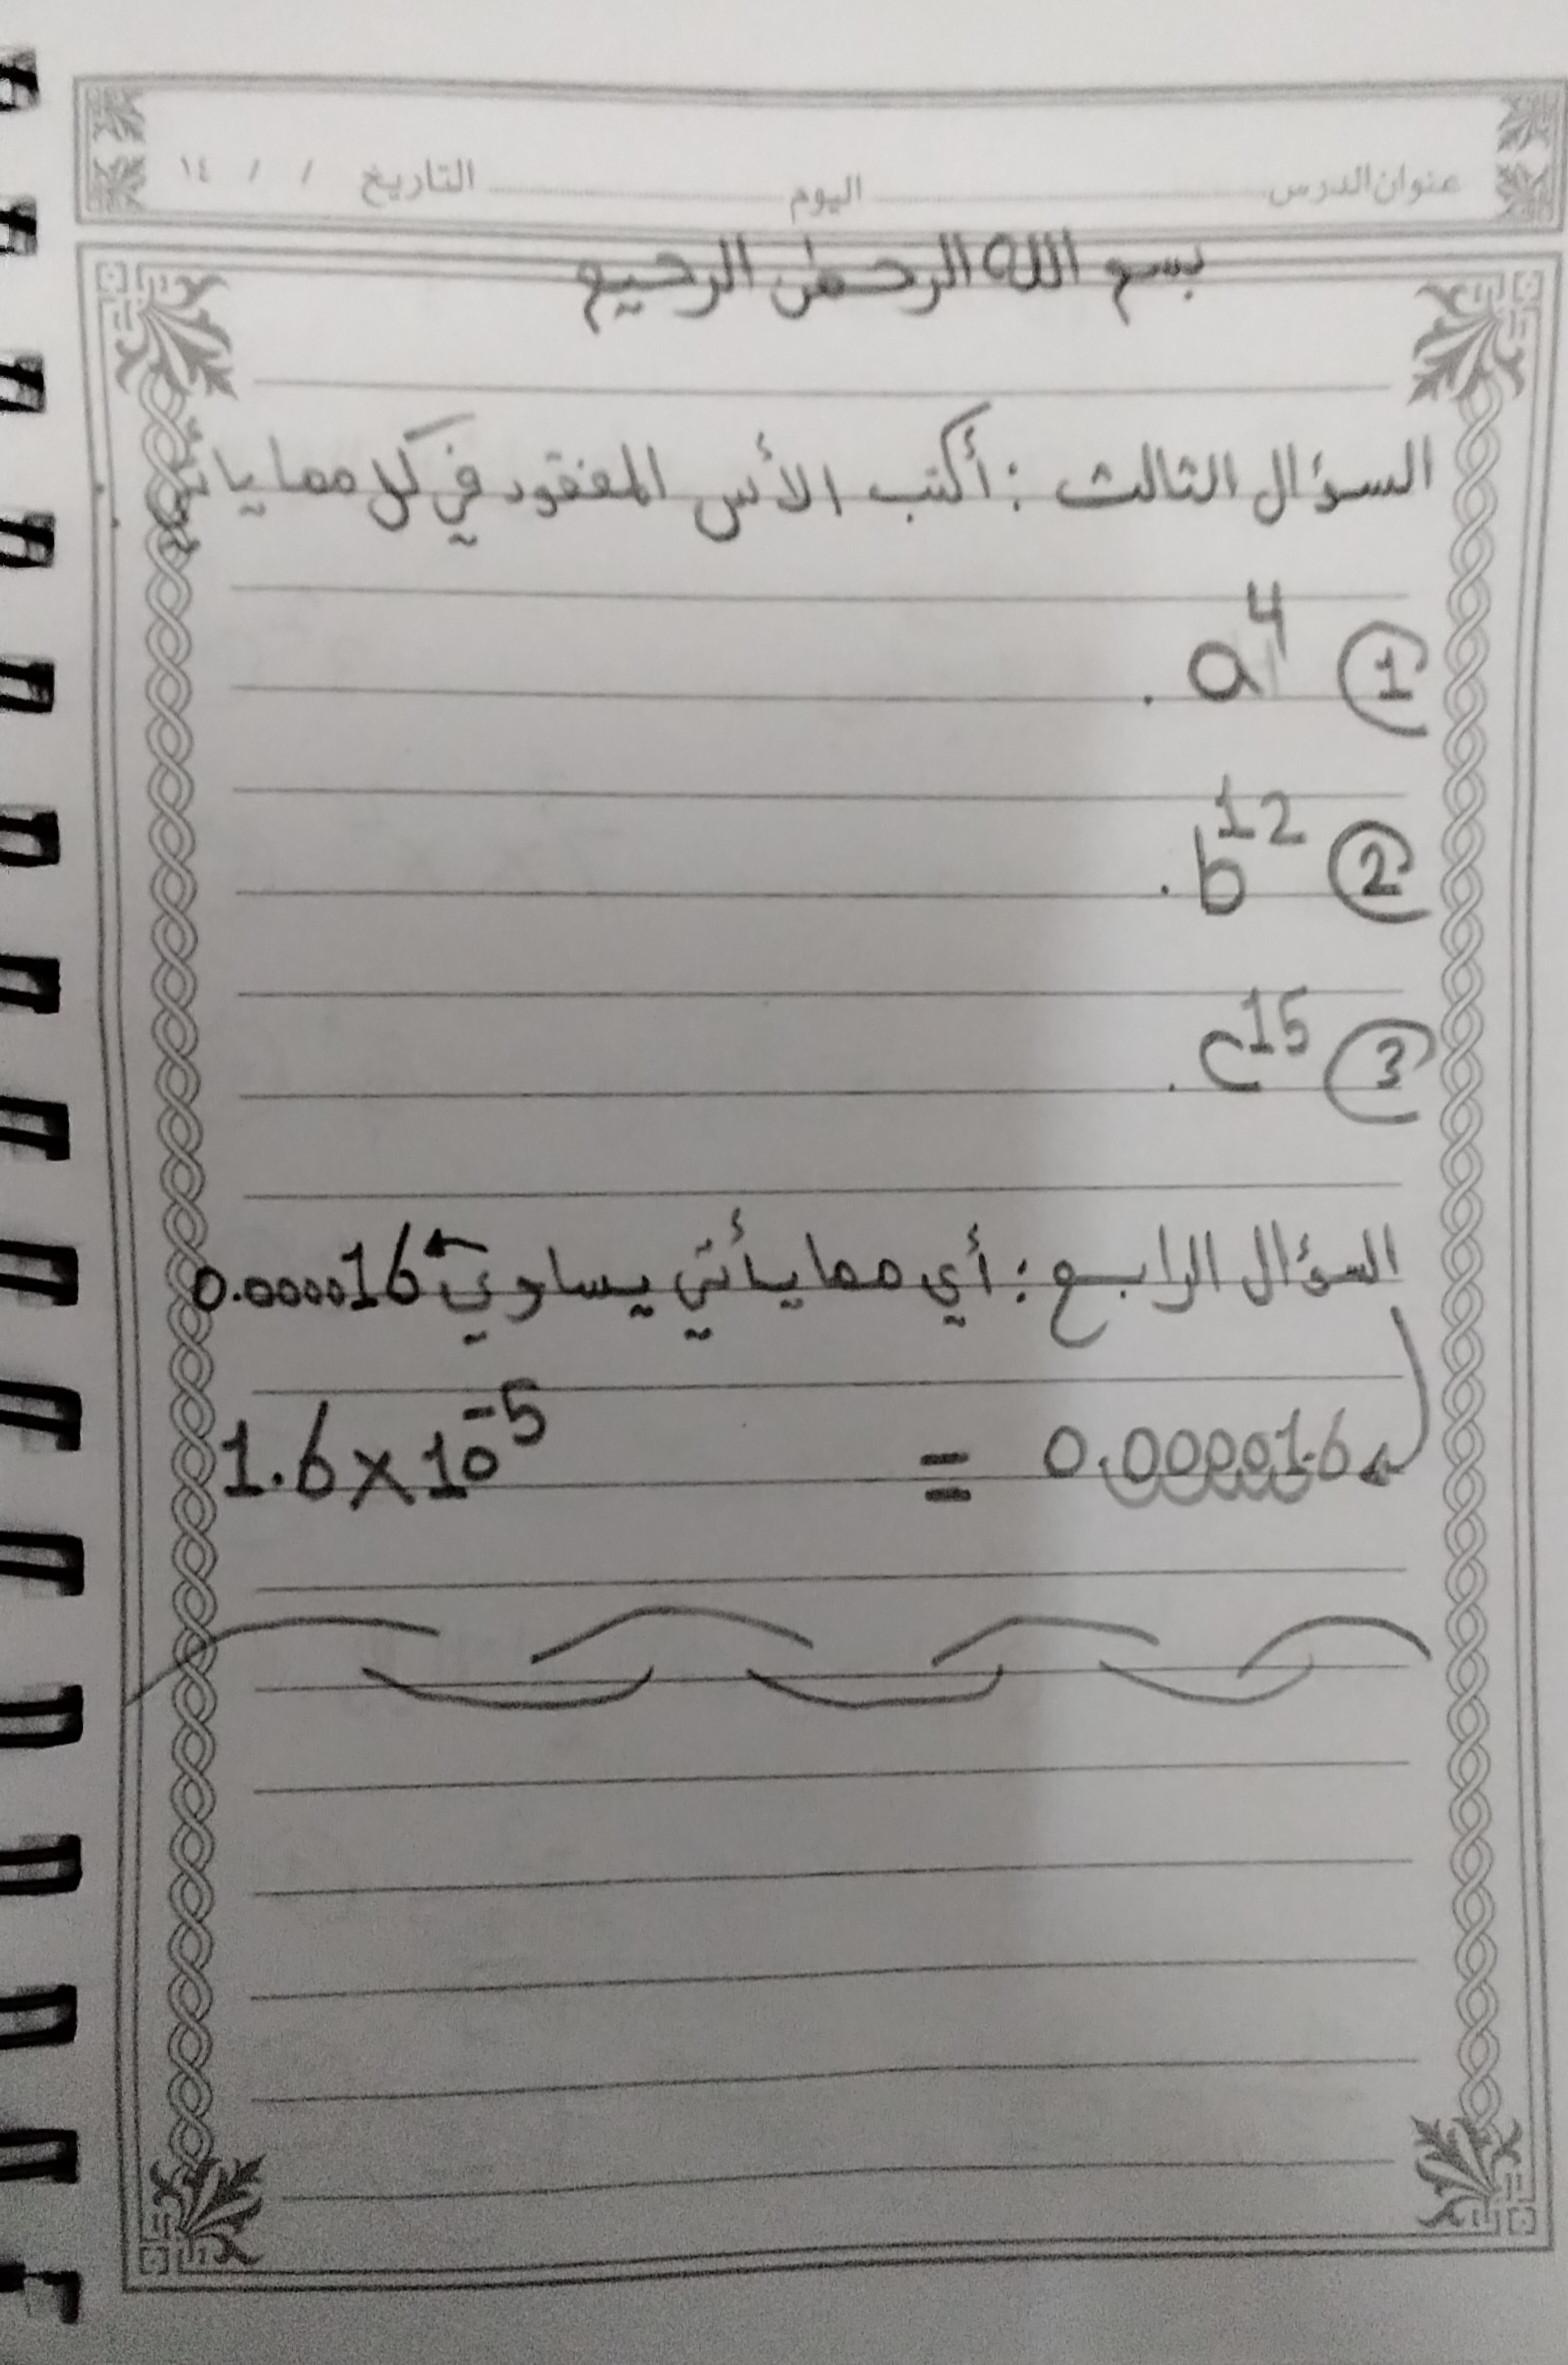 عنوان الدرس اليوم التاريخ / / ١٤
بسم الله الرحمن الرحيم
السؤال الثالث : أكتب الأس المفقود في كل مما يأتي
1 a⁴ .
2 b¹² .
3 c¹⁵ .
السؤال الرابع : أي مما يأتي يساوي 0.000016
0.000016 = 1.6 × 10⁻⁵